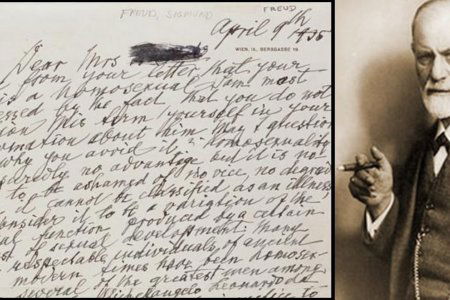 FREUD, SIGMUND
FREUD
April 9th 1935
WIEN, IX., BERGGASSE 19
Dear Mrs
from your letter that your
is a homosexual. I am most
essed by the fact, that you do not
ion this term yourself in your
ormation about him. May I question
why you avoid it? Homosexuality
uredly no advantage but it is no
to be ashamed of, no vice, no degrad
cannot be classified as an illness
onsider it to be a variation of the
al function produced by a certain
st of sexual development. Many
respectable individuals of ancient
modern times have been homosex
several of the greatest men among
Michelangelo, Leonardo da